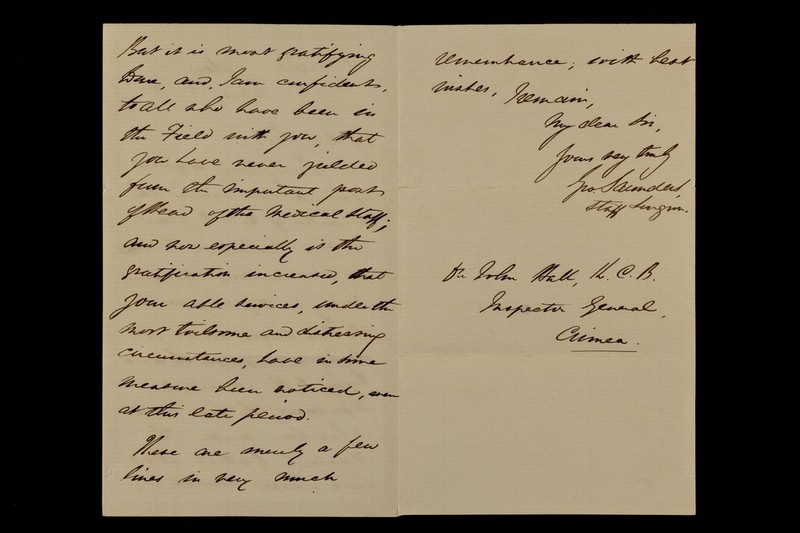 But it is most gratifying
here, and, I am confident,
to all who have been in
the Field with you, that
you have never yielded
from the important post
of Head of the Medical Staff;
and now especially is the
gratification increased, that
your able services, under the
most toilsome and distressing
circumstances, have in some
measure been noticed, even
at this late period.
These are merely a few
lines in very much
remembrance; with best
wishes, I remain,
My dear Sir,
Yours very truly
Geo Saunders,
Staff Surgeon.
Dr John Hall, K.C.B.
Inspector General,
Crimea.